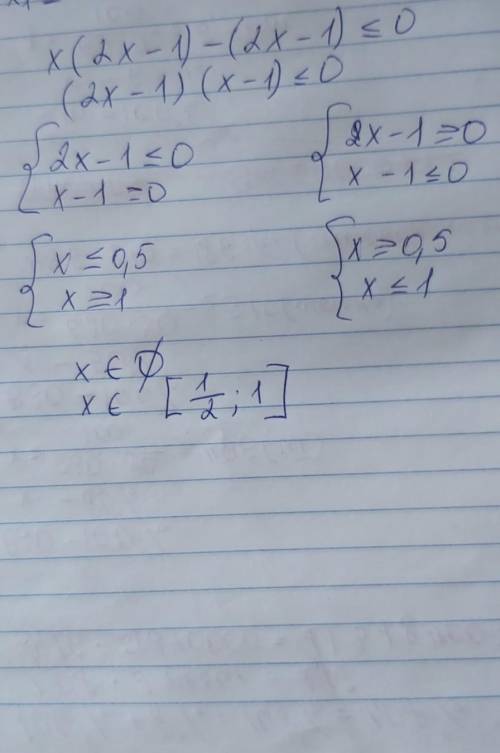 x(2x-1)-(2x-1)≤0
(2x-1)(x-1)≤0
{2x-1≤0
x-1≥0
{2x-1≥0
x-1≤0
{x≤0,5
x≥1
{x≥0,5
x≤1
x∈∅
x∈[1/2;1]